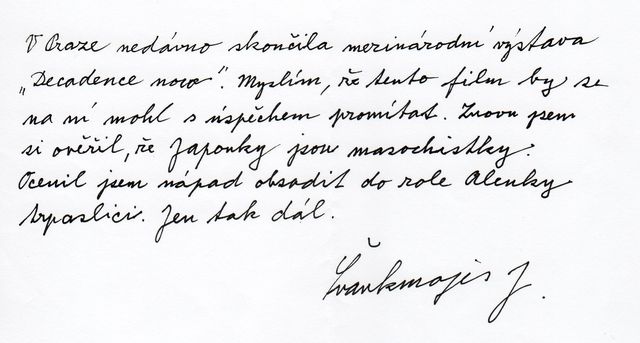 V Praze nedávno skončila mezinárodní výstava
„Decadence now". Myslím, že tento film by se
na ní mohl s úspěchem promítat. Znovu jsem
si ověřil, že Japonky jsou masochistky.
Ocenil jsem nápad obsadit do role Alenky
trpaslici. Jen tak dál.
Švankmajer J.